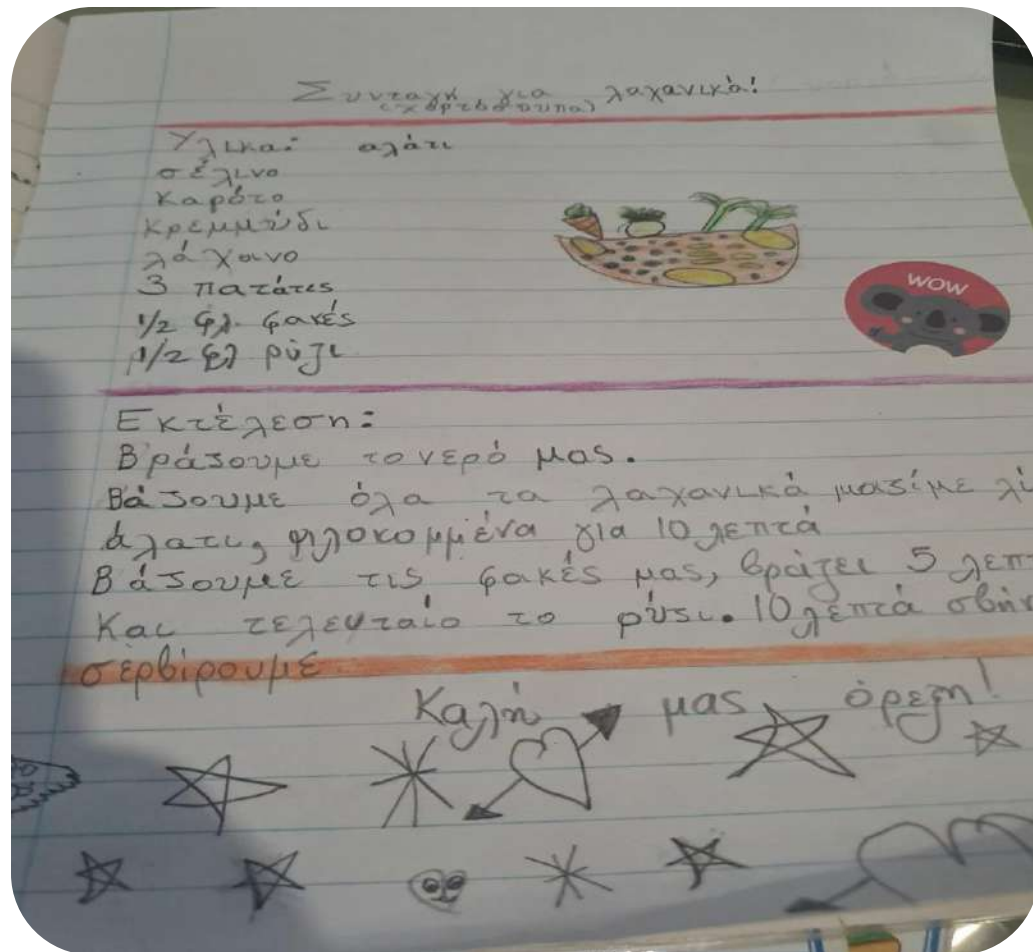 Συνταγή για λαχανικά!
(χορτόσουπα)
Υλικα: αλάτι
σέλινο
καρότο
κρεμμύδι
λάχανο
3 πατάτες
1/2 φλ. φακές
1/2 φλ ρύζι
WOW
Εκτέλεση:
Βράζουμε το νερό μας.
Βάζουμε όλα τα λαχανικά μαζί με
άλατι, ψιλοκομμένα για 10 λεπτά
Βάζουμε τις φακές μας, βράζει 5
Και τελευταίο το ρύζι. 10 λεπτά
σερβίρουμε
Καλή μας όρεξη!